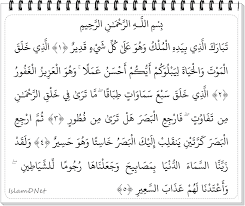 بِسْمِ اللَّهِ الرَّحْمَٰنِ الرَّحِيمِ
تَبَارَكَ الَّذِي بِيَدِهِ الْمُلْكُ وَهُوَ عَلَىٰ كُلِّ شَيْءٍ قَدِيرٌ ﴿١﴾ الَّذِي خَلَقَ
الْمَوْتَ وَالْحَيَاةَ لِيَبْلُوَكُمْ أَيُّكُمْ أَحْسَنُ عَمَلًا ۚ وَهُوَ الْعَزِيزُ الْغَفُورُ
﴿٢﴾ الَّذِي خَلَقَ سَبْعَ سَمَاوَاتٍ طِبَاقًا ۖ مَّا تَرَىٰ فِي خَلْقِ الرَّحْمَٰنِ
مِن تَفَاوُتٍ ۖ فَارْجِعِ الْبَصَرَ هَلْ تَرَىٰ مِن فُطُورٍ ﴿٣﴾ ثُمَّ ارْجِعِ
الْبَصَرَ كَرَّتَيْنِ يَنقَلِبْ إِلَيْكَ الْبَصَرُ خَاسِئًا وَهُوَ حَسِيرٌ ﴿٤﴾ وَلَقَدْ
زَيَّنَّا السَّمَاءَ الدُّنْيَا بِمَصَابِيحَ وَجَعَلْنَاهَا رُجُومًا لِّلشَّيَاطِينِ ۖ
وَأَعْتَدْنَا لَهُمْ عَذَابَ السَّعِيرِ ﴿٥﴾
IslamDNet